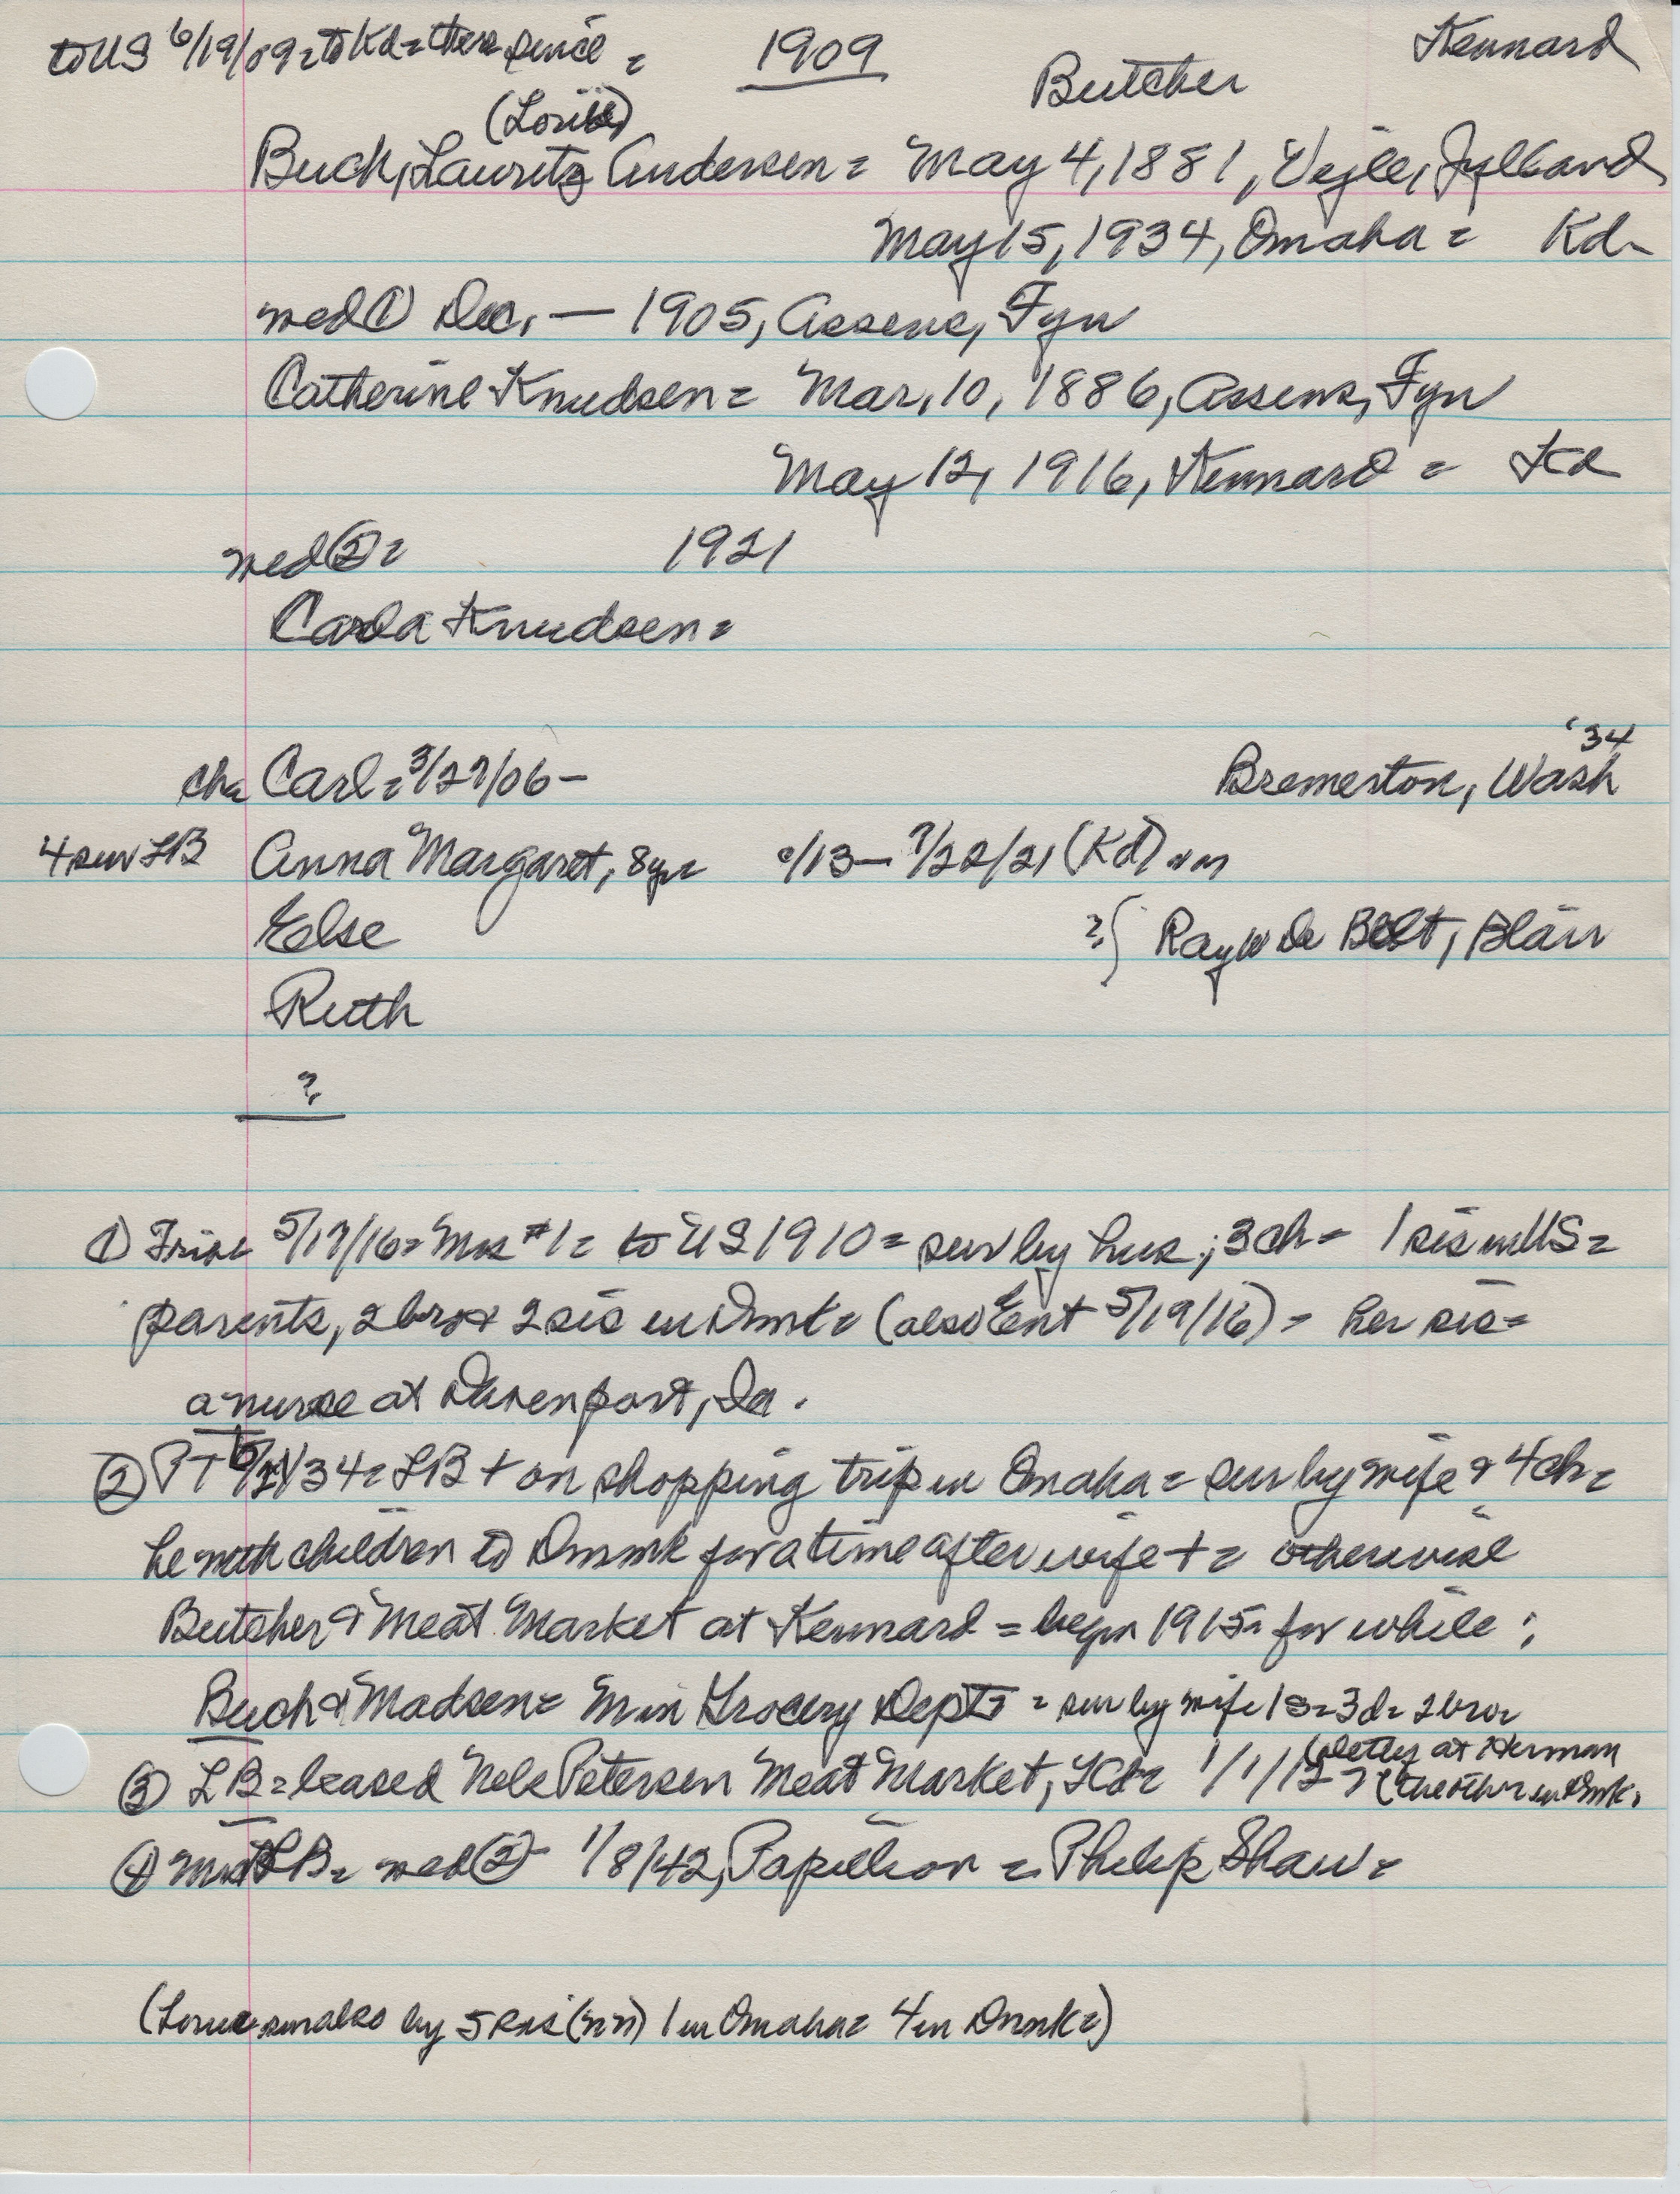 to US 6/19/09 = to Kd = there since = 1909 Kennard
Butcher
(Louie)
Buch, Lauritz Andersen = May 4, 1881, Vejle, Jylland
May 15, 1934, Omaha = Kd
med ① Dec. — 1905, Assens, Fyn
Catherine Knudsen = Mar. 10, 1886, Assens, Fyn
May 12, 1916, Kennard = Kd
med ② = 1921
Carla Knudsen =
'34
ch = Carl = 3/27/06 – Bremerton, Wash
4 surv LB Anna Margaret, 8 yr /13 – 7/22/21 (Kd)
Else ?{ Ray De Bolt, Blair
Ruth
?
① 5/17/16 = Mrs #1 = to US 1910 = surv by hus; 3 ch = 1 sis in US =
parents, 2 bro + 2 sis in Dnmk = (also Ent 5/19/16) = her sis =
a nurse at Davenport, Ia.
② PT /34 = LB + on shopping trip in Omaha = surv by wife & 4 ch =
he with children to Dnmk for a time after wife + = otherwise
Butcher & Meat Market at Kennard = begin 1915 = for while;
Buch & Madsen = M in Grocery Dept = surv by wife 1 s = 3 d = 2 bro =
③ LB = leased Nels Petersen Meat Market, Kd = 1/1/12 = at Herman
(the other in Dnmk.
④ Mrs LB = med ② 1/8/42, Papillion = Philip Shaw =
(Louie surv also by 5 sis (nn) 1 in Omaha = 4 in Dnmk =)